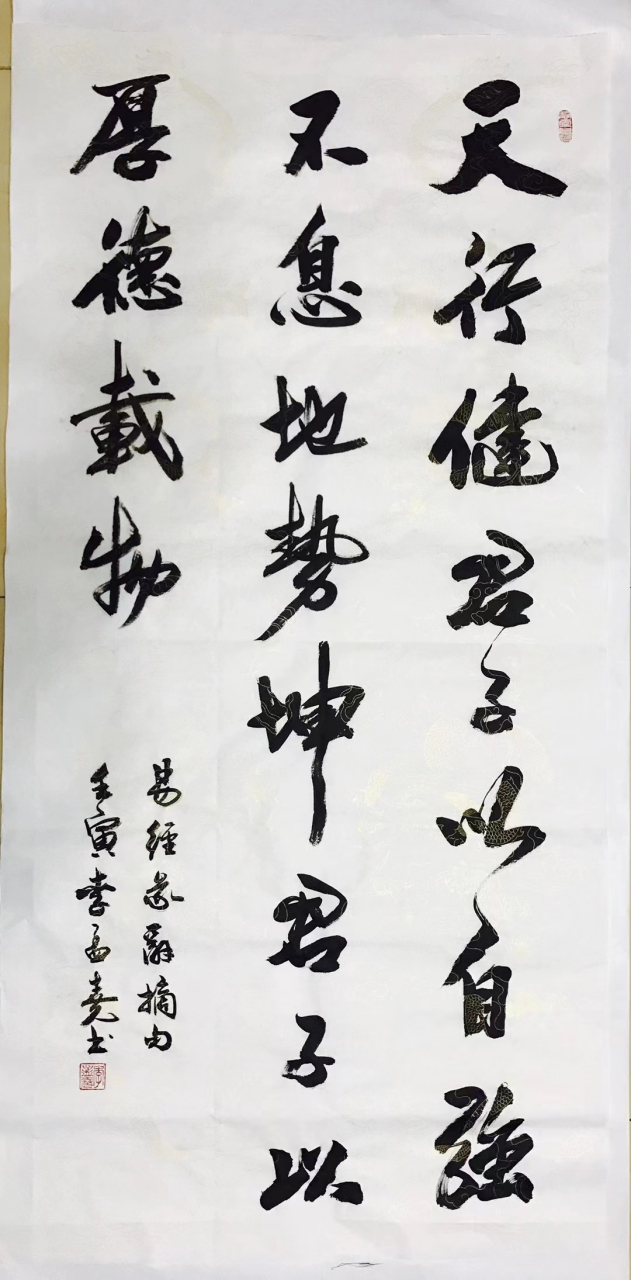 天行健君子以自強
不息地勢坤君子以
厚德載物
易經象辭摘句
壬寅李孟堯書